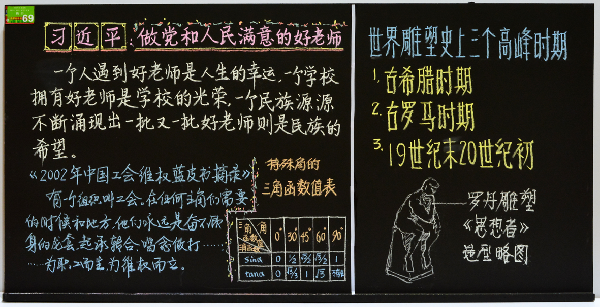 69
习近平:做党和人民满意的好老师
一个人遇到好老师是人生的幸运,一个学校
拥有好老师是学校的光荣,一个民族源源
不断涌现出一批又一批好老师则是民族的
希望。
《2002年中国工会维权蓝皮书摘录》
有一个组织叫工会。在任何主角们需要
的时候和地方,他们永远是奋不顾
身的龙套。起承转合、唱念做打……
……为职工而生,为维权而立。
特殊角的
三角函数值表
三角函数 角 0° 30° 45° 60° 90°
sinα 0 1/2 √2/2 √3/2 1
tanα 0 √3/3 1 √3 不存在
世界雕塑史上三个高峰时期
1.古希腊时期
2.古罗马时期
3.19世纪末20世纪初
罗丹雕塑
《思想者》
造型略图